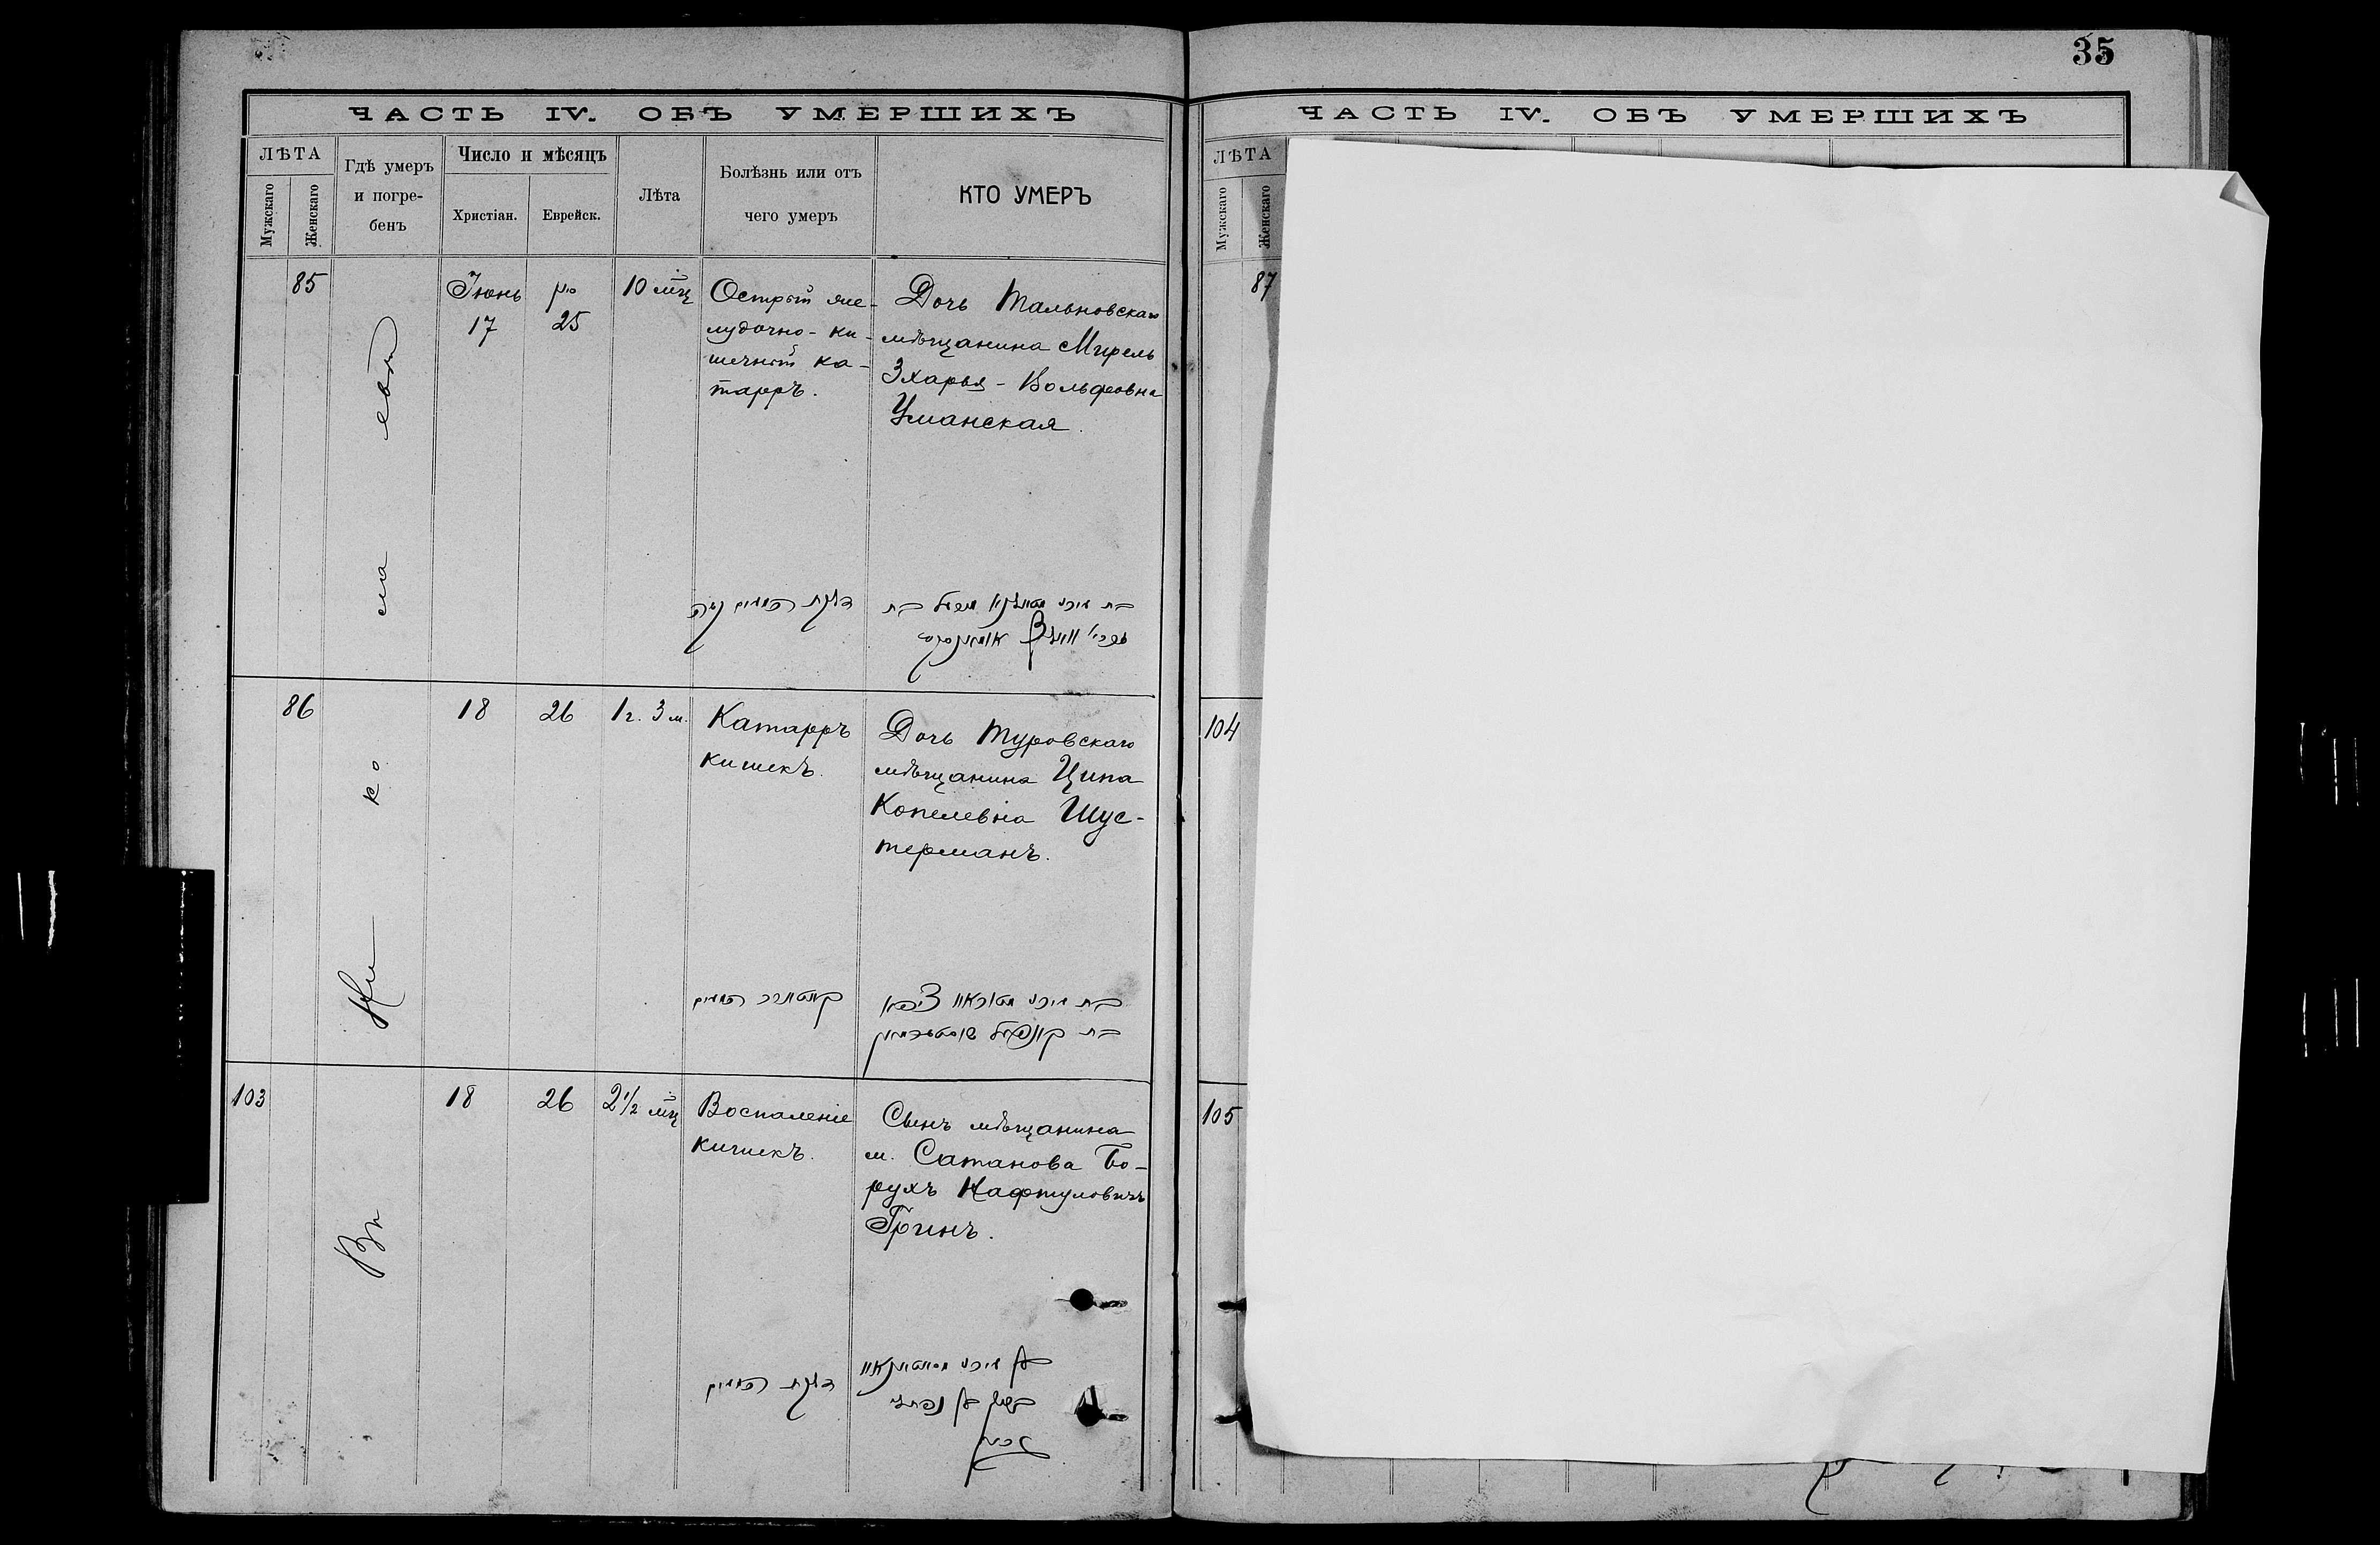 35
ЧАСТЬ IV. ОБЪ УМЕРШИХЪ
ЛѢТА
Мужскаго
Женскаго
Гдѣ умеръ
и погре-
бенъ
Число и мѣсяцъ
Христіан.
Еврейск.
Лѣта
Болѣзнь или отъ
чего умеръ
КТО УМЕРЪ
85
Іюнь
17
25
10 мц
Острый же-
лудочно-ки-
шечный ка-
тарръ.
Дочь Тальновскаго
мѣщанина Мирель
Зхарья-Вольфовна
Уманская.
דלקת המעים
בת
86
18
26
1 г. 3 м.
Катарръ
кишекъ.
Дочь Туровскаго
мѣщанина Ципа
Копелевна Шус-
терманъ.
המעים
בת
בת קאפיל שוסטערמאן
103
18
26
2 1/2 мц
Воспаленіе
кишекъ.
Сынъ мѣщанина
м. Сатанова Бо-
рухъ Нафтуловичъ
Гринъ.
דלקת המעים
Въ
ко
ЧАСТЬ IV. ОБЪ УМЕРШИХЪ
ЛѢТА
Мужскаго
Женскаго
87
104
105